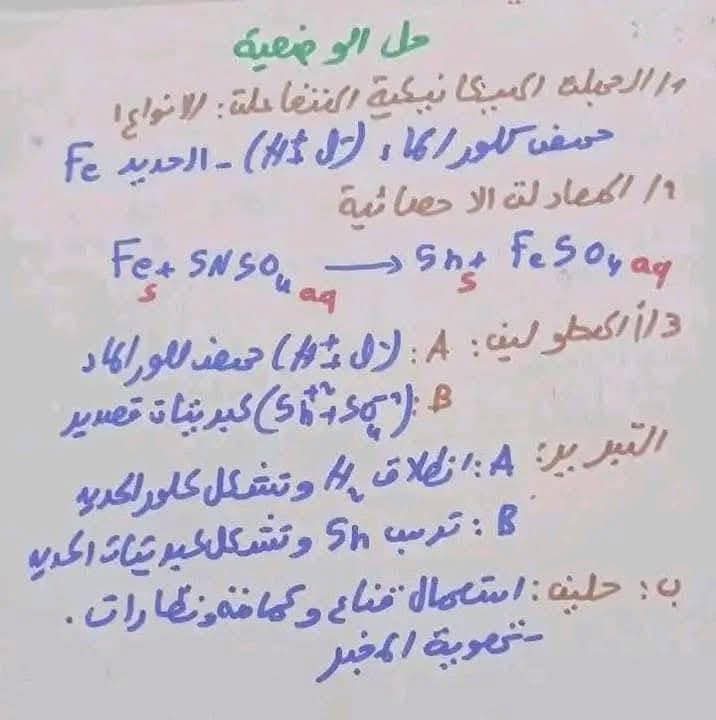 حل الوضعية
1/ الجملة الميكانيكية المتفاعلة: الانواع!
حمض كلور الماء (H⁺+Cl⁻) - الحديد Fe
2/ المعادلة الاحصائية
Fe s + SNSO₄ aq → Sn s + FeSO₄ aq
3/أ/ المحلولين: A: (H⁺+Cl⁻) حمض كلور الماء
B: (Sn⁺²+SO₄⁻²) كبريتات قصدير
التبرير: A: انطلاق H₂ وتشكل كلور الحديد
B: ترسب Sn وتشكل كبريتات الحديد
ب: حلين: استعمال قناع وكمامة ونظارات.
- تهوية المخبر